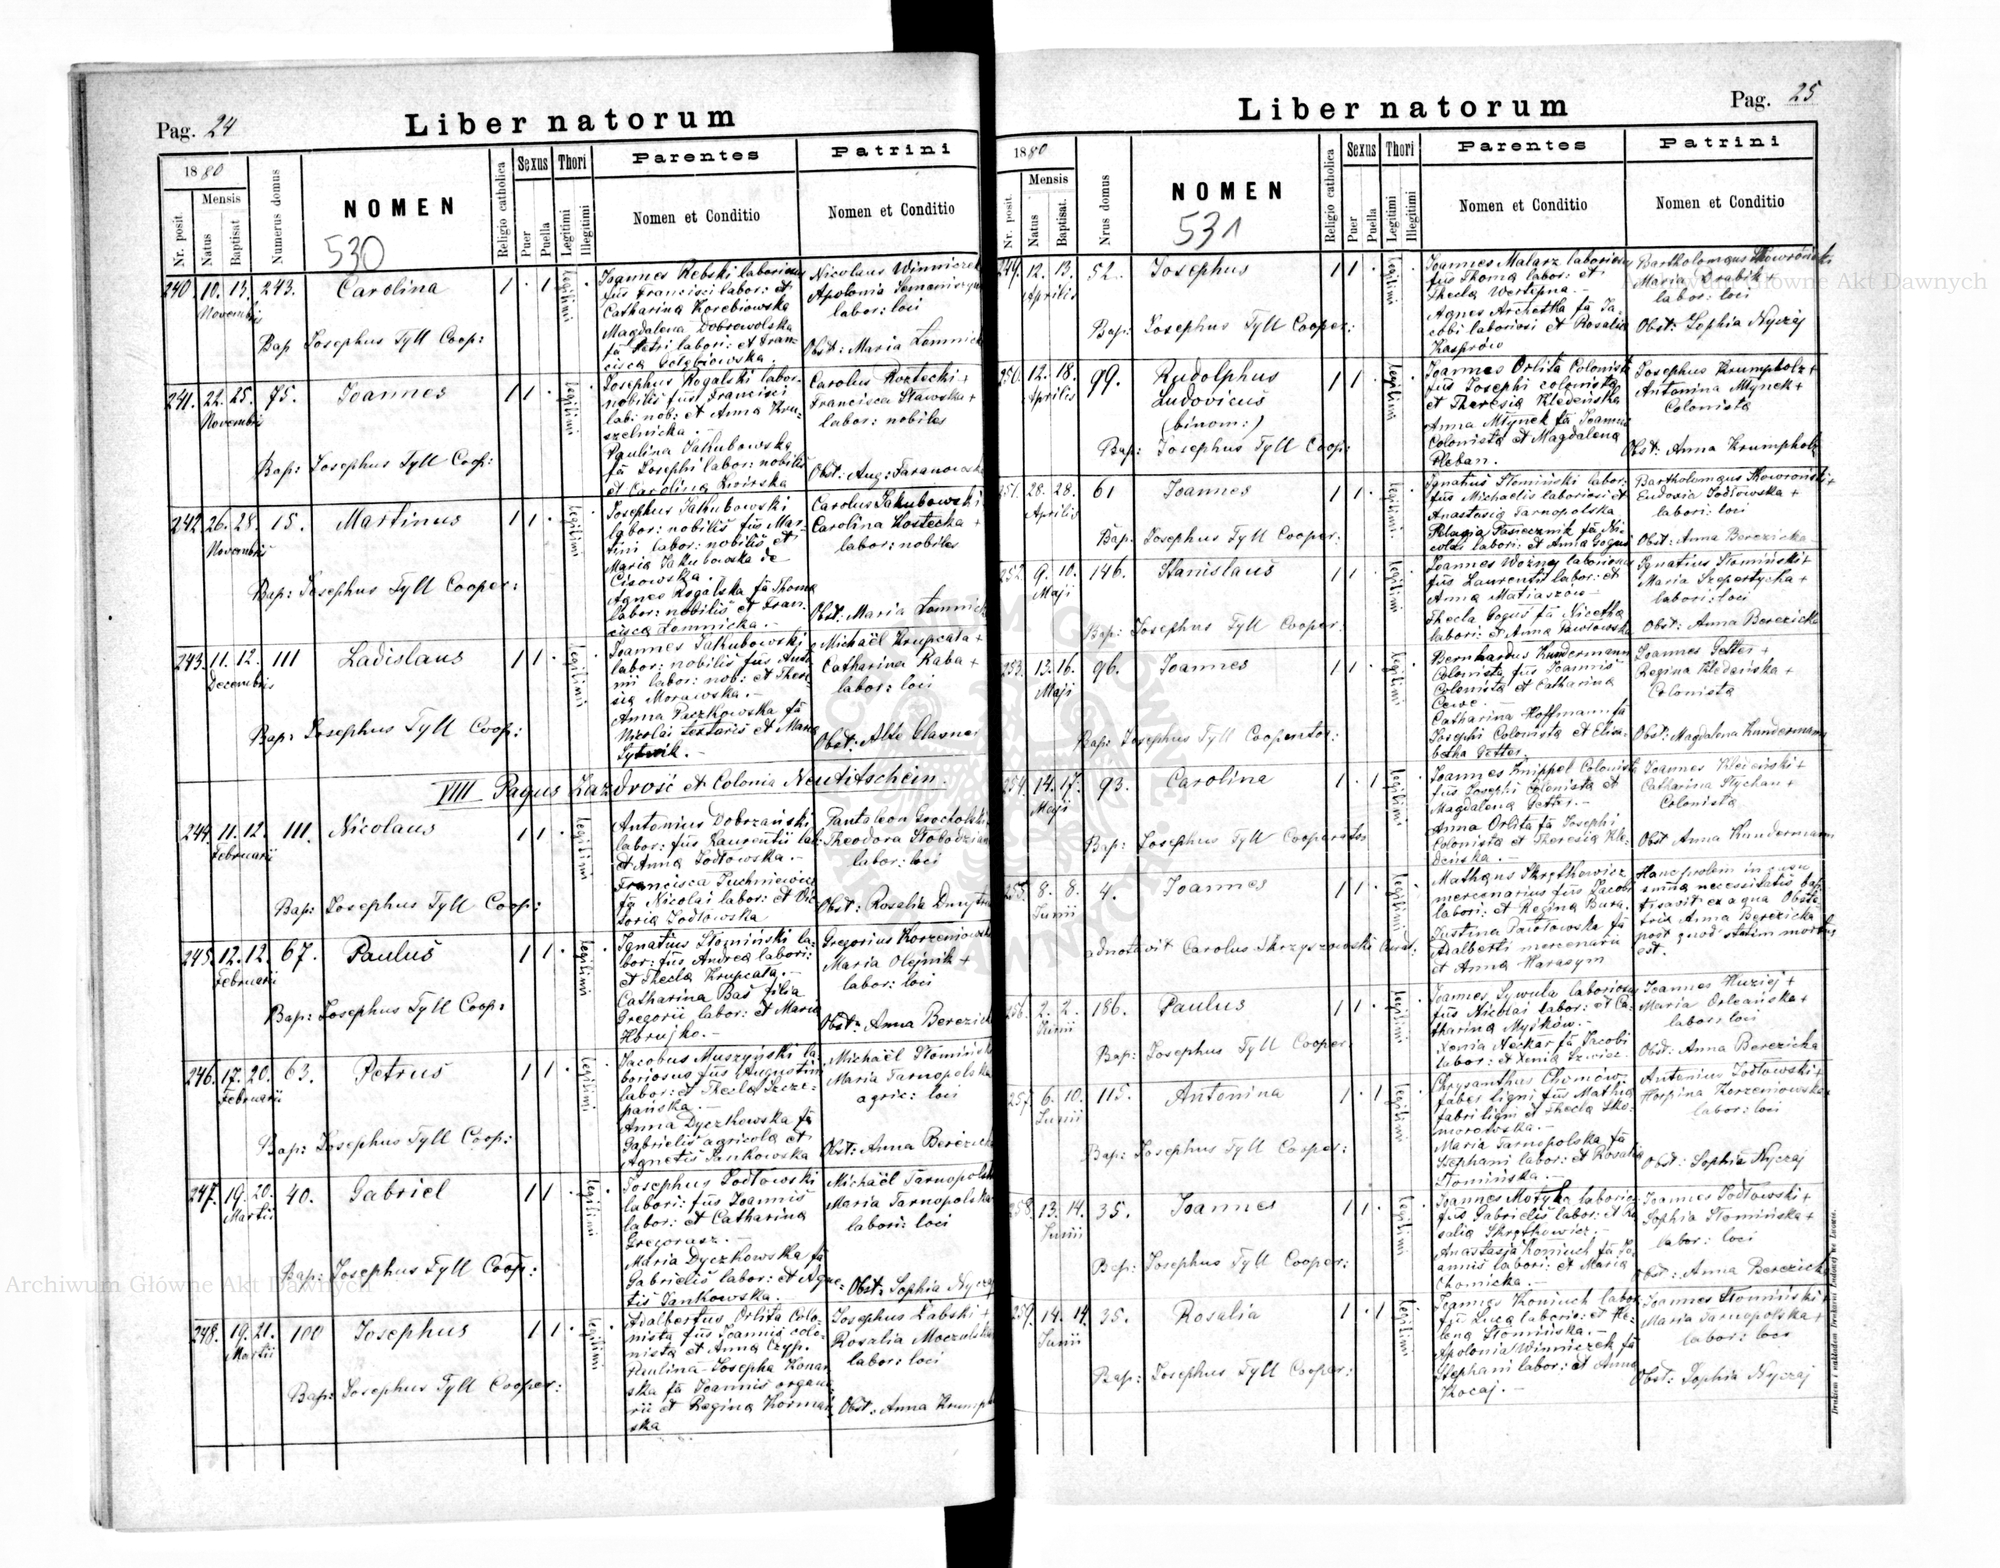 Pag. 24
Liber natorum
1880
Nr. posit.
Mensis
Natus
Baptisat
Numerus domus
NOMEN
530
Religio catholica
Sexus
Puer
Puella
Thori
Legitimi
Illegitimi
Parentes
Nomen et Conditio
Patrini
Nomen et Conditio
240. 10. 13. 243. Carolina 1 . 1 legitimi
Novembris
Bap. Josephus Tyll Coop:
Joannes Rebski laboriosus
fũs Francisci labor: et
Catharina Korebiowska
Magdalena Dobrowolska
fã Petri labori: et Fran-
cisca Gołębiowska.
Apolonia
labor: loci
Obst: Maria
241. 22. 25. 75. Joannes 1 1 . legitimi
Novembris
Bap: Josephus Tyll Coop:
Josephus Rogalski labor.
nobilis fũs Francisci
lab: nob: et Anna Kru-
szelnicka.
Paulina Jakubowska
fã Josephi labor: nobilis
et Carolina
Carolus Roztecki +
Francisca Sławska +
labor: nobiles
Obst: Aug: Taranowska
242. 26. 28. 15. Martinus 1 1 . legitimi
Novembris
Bap: Josephus Tyll Cooper:
Josephus Jakubowski
labor: nobilis fũs Mar-
tini labor: nobilis et
Maria Jakubowska de
Cisowska.
Agnes Rogalska fã Thoma
labor: nobilis et Fran-
cisca Łomnicka.
Carolus Jakubowski
Carolina Kostecka +
labor: nobiles
Obst: Maria
243. 11. 12. 111 Ladislaus 1 1 . legitimi
Decembris
Bap: Josephus Tyll Coop:
Joannes Jakubowski
labor: nobilis fũs Anto
nii labor: nob: et There
sia Morawska.
Anna Paczkowska fã
Nicolai textoris et Maria
Sytnik.
Michaël Krupcata +
Catharina Raba +
labor: loci
Obst: Alte
VIII Pagus Zazdrość et Colonia Neutitschein.
244. 11. 12. 111. Nicolaus 1 1 . legitimi
Februarii
Bap: Josephus Tyll Coop:
Antonius Dobrzański
labor: fũs Laurentii lab:
et Anna Jodłowska.
Francisca Juchniewicz
fã Nicolai labor: et Vic
toria Jodłowska
Pantaleon
Theodora
labor: loci
Obst: Rosalia
245. 12. 12. 67. Paulus 1 1 . legitimi
Februarii
Bap: Josephus Tyll Coop:
Ignatius Słomiński la-
bor: fũs Andrea labori:
et Thecla Krupcata.
Catharina Bas filia
Gregorii labor: et Maria
Hbrujko.
Gregorius Korzeniowski
Maria Olejnik +
labor: loci
Obst: Anna
246. 17. 20. 63. Petrus 1 1 . legitimi
Februarii
Bap: Josephus Tyll Coop:
Jacobus Muszyński la
boriosus fũs Augustini
labor: et Thecla Szcze-
pańska.
Anna Dyczkowska fã
Gabrielis agricola et
Agnetis Jankowska
Michaël
Maria Tarnopolska
agric: loci
Obst: Anna
247. 19. 20. 40. Gabriel 1 1 . legitimi
Martii
Bap: Josephus Tyll Coop:
Josephus Jodłowski
labori: fũs Joannis
labor: et Catharina
Gregorasz.
Maria Dyczkowska fã
Gabrielis labor: et Agne-
tis Jankowska.
Michaël
Maria Tarnopolska
labori: loci
Obst: Sophia
248. 19. 21. 100 Josephus 1 1 . legitimi
Martii
Bap: Josephus Tyll Cooper:
Adalbertus Orlita colo-
nista fũs Joannis colo-
nista et Anna Czyp.
Paulina Josepha Konar
ska fã Joannis organa
rii et Regina Korman
ska
Josephus Łabski +
Rosalia
labor: loci
Obst: Anna
Liber natorum
Pag. 25
1880
Nr. posit.
Mensis
Natus
Baptisat.
Nrus domus
NOMEN
531
Religio catholica
Sexus
Puer
Puella
Thori
Legitimi
Illegitimi
Parentes
Nomen et Conditio
Patrini
Nomen et Conditio
249. 12. 13. 52. Josephus 1 1 . legitimi
Aprilis
Bap: Josephus Tyll Cooper:
Joannes Malarz laboriosus
fũs Thoma labor: et
Thecla Wertepna.
Agnes Archotka fã Ja-
cobi laboriosi et Rosalia
Kasprów
Bartholomaus Skowroński
Maria Drabik
labor: loci
Obst: Sophia Nyczaj
250. 12. 18. 99. Rudolphus 1 1 . legitimi
Aprilis
Ludovicus
(binom:)
Bap: Josephus Tyll Coop:
Joannes Orlita Colonista
fũs Josephi colonista
et Theresia Kledeńska
Anna Młynek fã Joannis
Colonista et Magdalena
Pleban.
Josephus Krumpholz +
Antonina Młynek +
Colonista
Obst: Anna Krumpholz
251. 28. 28. 61 Joannes 1 1 . legitimi
Aprilis
Bap: Josephus Tyll Cooper:
Ignatius Słomiński labor:
fũs Michaelis laboriosi et
Anastasia Tarnopolska
Pelagia Pasiecznik fã Ni
colai labori: et Anna Gogus
Bartholomaus Skowroński +
Eudoxia Jodłowska +
labori: loci
Obst: Anna Berezicka
252. 9. 10. 146. Stanislaus 1 1 . legitimi
Maji
Bap: Josephus Tyll Cooper:
Joannes Woźny laboriosus
fũs Laurentii labor: et
Anna Matiaszów
Thecla Gogus fã Nicetha
labori: et Anna Pawłowska
Ignatius Słomiński +
Maria Szepertycha +
labori: loci
Obst: Anna Berezicka
253. 13. 16. 96. Joannes 1 1 . legitimi
Maji
Bap: Josephus Tyll Coopertor:
Bernhardus Kundermann
Colonista fũs Joannis
Colonista et Catharina
Cewe.
Catharina Hoffmann fã
Josephi Colonista et Elisa
betha Getter.
Joannes Getter +
Regina Kledeńska +
Colonista
Obst: Magdalena Kundermann
254. 14. 17. 93. Carolina 1 . 1 legitimi
Maji
Bap: Josephus Tyll Cooperator
Joannes Knippel Colonista
fũs Josephi Colonista et
Magdalena Getter.
Anna Orlita fã Josephi
Colonista et Theresia Kle-
deńska.
Joannes Kleieński +
Catharina Stychan +
Colonista
Obst Anna Kundermann
255. 8. 8. 4. Joannes 1 1 . legitimi
Junii
adnotavit Carolus Skrzyszowski Curat:
Mathaus Skrythowicz
mercenarius fũs Jacobi
labori: et Regina Bura.
Justina Pawłowska fã
Adalberti mercenarii
et Anna Harasym
Hanc prolem in casu
summa necessitatis bap-
tisavit ex aqua Obste-
trix Anna Berezicka
post quod statim mortuus
est.
256. 2. 2. 186. Paulus 1 1 . legitimi
Junii
Bap: Josephus Tyll Cooper:
Joannes Sywula laboriosus
fũs Nicolai labor: et Ca-
tharina Myśków.
Xenia Neckar fã Jacobi
labor: et Xenia
Joannes Huziej +
Maria Orleańska +
labor: loci
Obst: Anna Berezicka
257. 6. 10. 115. Antonina 1 . 1 legitimi
Junii
Bap: Josephus Tyll Cooper:
Chrysanthus Chomów
faber ligni fũs Mathia
fabri ligni et Thecla Sko-
morowska.
Maria Tarnopolska fã
Stephani labor: et Rosalia
Słomińska.
Antonius Jodłowski +
Horpina Korzeniowska
labor: loci
Obst: Sophia Nyczaj
258. 13. 14. 35. Joannes 1 1 . legitimi
Junii
Bap: Josephus Tyll Cooper:
Joannes Motyka laborio:
fũs Gabrielis labor: et Ro
salia Skrythowicz.
Anastasja Koniuch fã Jo-
annis labori: et Maria
Chomicka.
Joannes Jodłowski +
Sophia Słomińska +
labor: loci
Obst: Anna Berezicka
259. 14. 14. 35. Rosalia 1 . 1 legitimi
Junii
Bap: Josephus Tyll Cooper:
Joannes Koniuch labor
fũs Luca laborio: et He-
lena Słomińska.
Apolonia Winniczek fã
Stephani labor: et Anna
Kocaj.
Joannes Słomiński +
Maria Tarnopolska +
labor: loci
Obst: Sophia Nyczaj
Archiwum Główne Akt Dawnych
Archiwum Główne Akt Dawnych